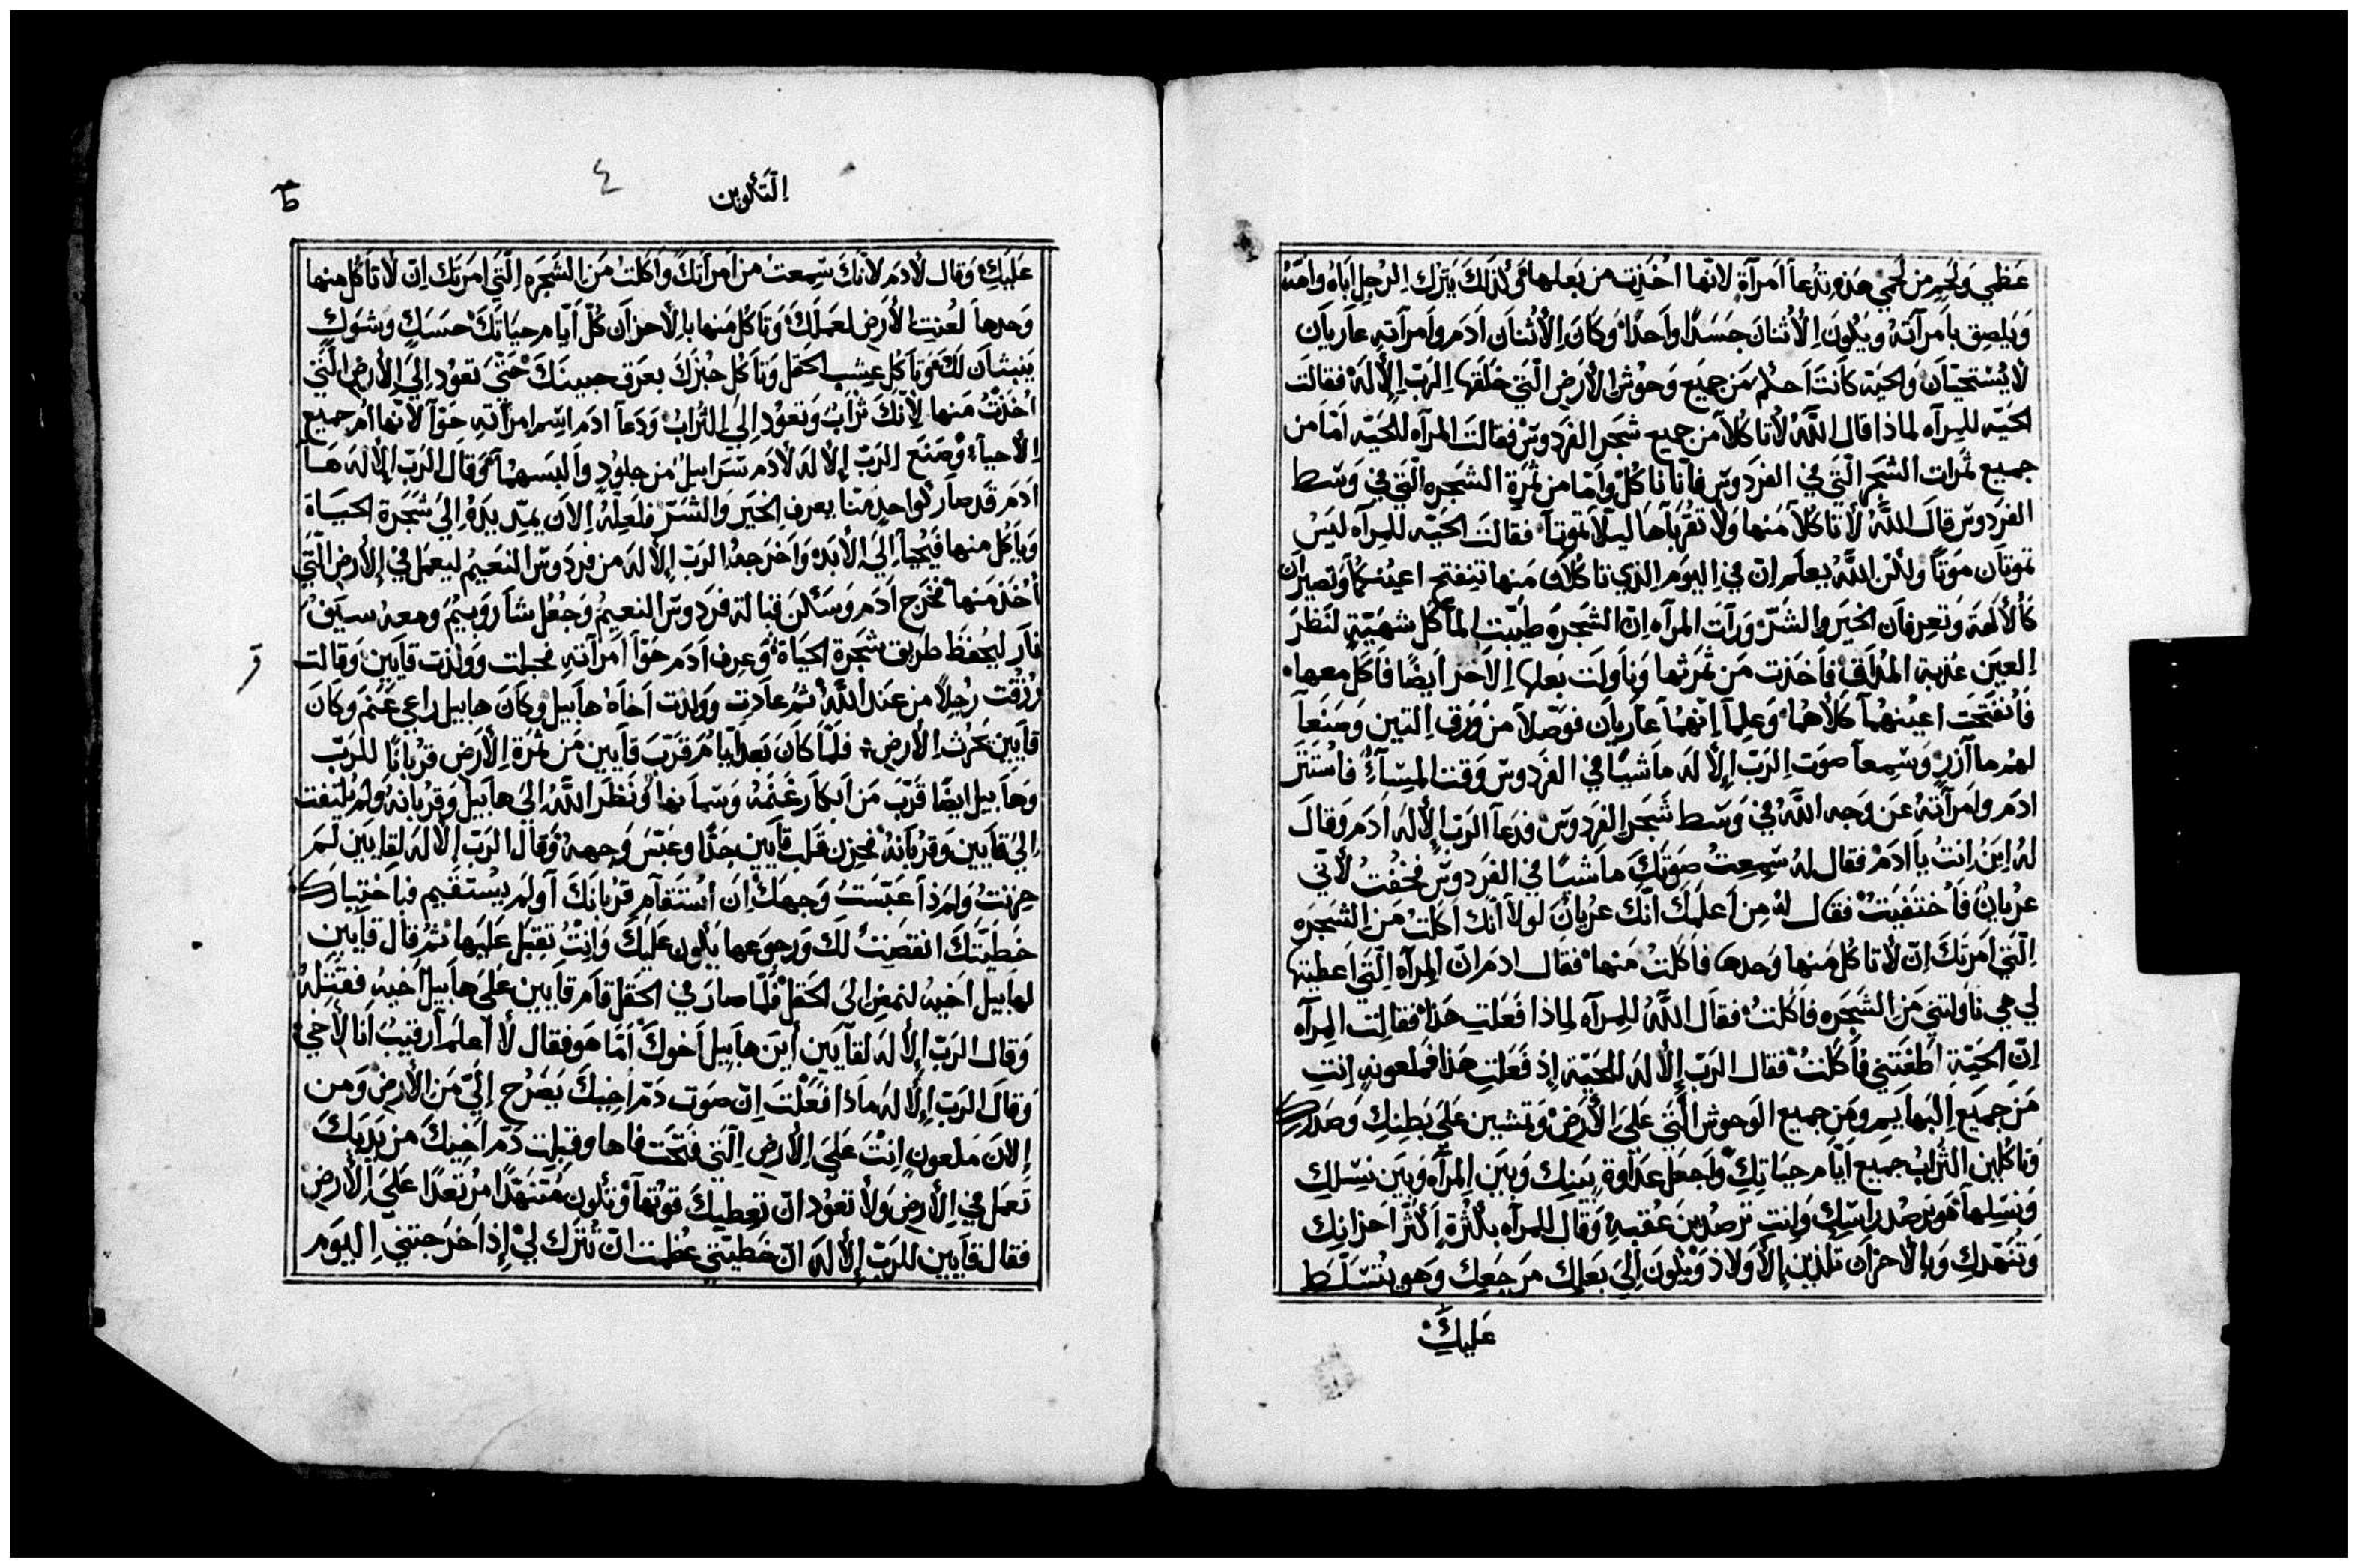 عَظمِي وَلَحمٍ مِن لَحمِي هَذِه تُدعَا اَمرَآةٍ لانّها اخُذِت من بَعلها فَلذَلكَ يَترُك اِلرجِل اَبَاهُ وَامّهُ
وَيَلصِق باَمرَآتهُ وَيكُونَ اِلأثنانَ جَسَدًا واَحدًا وَكانَ اِلأثناَن ادَم وامرآته عاَرياَن
لأيَسْتحيّاَن وَالحيّه كاَنتَ اَحكم مَن جميَع وَحوُش الأرَض الّتَي خلَقَها الرَبّ اِلألَهْ فقالَت
الحَيّه للمرآه لماذا قال اللَّهْ لأتاكُلآ من جميع شجَر الفرَدوسْ فقالَت المرآه للحَيّه اَمّا من
جميع ثمرات الشجَر الّتَي في الفرَدوس فاَنا ناكُلْ وَامّا من ثمَرة الشجَره الّتَي في وَسَط
الفرَدوس قال اللَّهُ لأتاكلآ مَنها وَلأ تقرُبَاها ليَلآ تموتآ فقالَت الحَيّه للمرآه ليَسُ
تموتاَن مَوتًا ولكن اللَّهُ يعلَم اِنّ في اِليوَم اِلذي تاكُلاَن مَنها تنِفتَح اعيُنكمآ وَتصيَران
كاَلألَهة وَتعِرفاَن الخيَر والشَرّ وَرآت المرآه اِنّ الشجَره طيّبت المأكَل شَهيّةٍ لنظَرَ
اِلعيَن عَذبة المُذلَق فاَخذت مَن ثمرَتها وَناَولَت بَعلَها اِلاَخَر اَيضًا فاَكَل معها
فاَنفتَحت اعيُنهُماَ كلأهُما وَعلِماَ اِنّهُما عاَرياَن فوَصّلآ من وَرَق اِلتين وَصنَعاَ
لهُمِا مآزر وَسَمعاَ صَوَت اِلرَبّ اِلألَه ماَشيًا في الفرَدوس وَقت المسَآءْ فاسُتتَر
ادَم وَامرَآتهُ عَن وَجه اللَّهْ في وَسَط شَجَر الفرَدوس فدَعاَ الرَبّ اِلألَه اَدَم وَقالَ
لهُ اِيَن اِنتُ ياَ ادَم فقال لهُ سَمعتُ صَوَتَكَ ماَشيًا في الفرَدوس فخفُتُ لأنّي
عريانُ فاَختفيَتُ فقال لهُ مِن اَعلمَكَ انّكَ عريَانُ لَولآ انّكَ اكَلتُ مَن الشجَره
اِلّتَي امَرتَكَ اِنّ لأتاكُل مَنها وَحدها فاَكلتُ مَنها فقال ادَم انّ المرآه الّتَي اَعطيتَها
لي هي ناَولتنَي مَن الشجَره فاَكلتُ فقاَل اللَّهُ للمرآه لماذا فَعَلتِ هَذا فقالت المرآه
اِنّ الحَيّة اَطغَتني فاَكَلتُ فقال الرَبّ اِلألَه للحَيّة اِذ فَعَلتِ هَذا فمَلعونهٍ اِنتِ
مَن جميَع اِلبَهايَم وَمن جميع الوَحوش الّتَي عَلَي الأرَض وَتمشين عَلَي بَطنِكِ وَصَدركِ
وَتاكلين التُراَب جميع اَيّام حيَاتكِ وَاجعَل عَدَاوة بَيَنكِ وَبَين المرآه وَبَين نَسَلكِ
وَنسَلها هَو يَرصُد راسَكِ وَانتِ ترَصُدينَ عَقبه وَقال للمرآه بكُثرة اَكثّر اَحزانِك
وَتنَهّدكِ وَبالأحزاَن تلَدين الأوَلاد وَيكُونَ الَي بَعَلكِ مَرجَعكِ وَهو يتَسَلّط
عَليكِ
اِلتَكوين
٤
عَليكِ وَقال لأدَم لأنكَ سَمعت من امرَآتكَ وَاكلَت مَن الشجَره اِلّتَي امَرتك اِنّ لأتاَكُل منها
وَحدها لُعنِت الأرَض لعمَلَكْ وَتاَكُل مَنها باِلأحزاَن كُلّ اَيّام حيَاتكَ حسَكٍ وشوَكٍ
يَنبتاَن لَكْ وَتاَكُل عِشب الحَقل وَتاَكُل خُبزَكَ بعَرق جبينَكَ حَتّي تعوُد اِلَي اِلأرض الّتَي
اخُذتُ مَنها لأنّكَ ترَابُ وَتعوُد اِلَي التُراَب وَدَعآ ادَم اسَم امرآته حَوّآ لأنّها ام جميع
اِلأحيآء وَصَنَع اِلرَبّ اِلألَه لأدَم سَرَابيل مَن جلوُدٍ والَبسَهمآ وَقال الرَبّ اِلألَه هَا
اَدَم قَد صاَر كواحدٍ منّا يعرف الخيَر وَالشَرّ فلَعلّهُ اِلاَن يَمدّ يَدَهُ اِلَي شَجَرة الحيَاة
وَيأكُل منها فَيَحيآ اِلَي اِلأبَد وَاخَرجهُ الرَبّ اِلألَه مَن فرَدوس النعَيم ليعمَل في اِلأرض الّتَي
اُخذ مَنها فخرَج ادَم وَسَكن قبالة فرَدوس النعيم وَجُعل شاَروَبيم ومعه سيَف
ناَر ليَحفظ طريق شجَرة الحيَاة وَعرف ادَم حَوّآ امرآته فحبلت وَولدت قاَيَين وَقالت
رُزقت رجلاً من عَند اللَّهُ ثمُ عاَدت ووَلدت اَخاَهُ هاَبيل وكاَنَ هابيل راعي غَنم وَكانَ
قاَيَين يَحرُث اِلأرَض فلَمّا كاَن بَعد ايّاَم قرّبَ قاَيَين مَن ثمَرة اِلأرَض قرُبانًا للرَبّ
وَهاَبيل ايضًا قَرّب مَن اَبكاَر غَنَمهُ وَسَمانها وَنظر اللَّهُ اِلَي هاَبيل وَقرُبانهُ وَلم يَلتفَت
اِلَي قاَيَين وَقرُبانهُ فحزن قَلب قاَيَين جدًّا وعَبّسَ وَجههُ وَقال الرَبّ اِلألَه لقاَيَين لَم
حزنت وَلمَ ذاَ عَبّسَت وَجهَكَ اِن اسُتقاَم قرُبانَكَ اَو لَم يَستقَيم فباَختيارك
خطيّتكَ انقضَت لكَ وَرجوعَها يَكون عَليَكَ وَانتُ تقبَل عَليَها ثمُ قال قاَيَين
لهابيل اخيهُ لنَمضِ الى الحَقل فلمّا صارَ في الحَقل قاَم قاَيَين عَلَي هاَبيل اَخيه فقتَلهُ
وَقال الرَبّ اِلألَه لقاَيَين أيَن هاَبيل اَخوكَ اَمّا هَو فقال لا اَعلَم اَرقيبُ اَنا لأخي
وَقال الرَبّ اِلألَه ماَذا فَعَلتَ اِنّ صَوت دَمّ اخيكَ يَصرُخ اِليّ مَن الأرض وَمن
اِلاَن مَلعونٍ اِنتَ عَلَي اِلأرض الّتَي فتَحَت فاها وَقبِلت دَمّ اَخيكَ من يَدَيكَ
تَعمَل في اِلأرض وَلأ تعوُد انّ تعطيكَ قوتها وَتكون مُتنَهّدًا مُرتعدًا عَلَي اِلأرض
فقال قاَيَين للرَبّ اِلألَه انّ خطيّتي عَظمت انّ تُترَك لي اِذ اَخرَجتني اليوَم